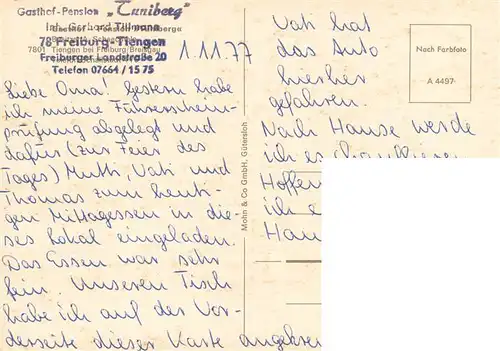 Gasthof-Pension „Tuniberg"
Inh. Gerhard Tillmann
78 Freiburg-Tiengen
7801 Tiengen bei Freiburg/Breisgau
Freiburger Landstraße 20
Telefon 07664 / 15 75
1.11.77
Liebe Oma! Gestern habe
ich meine Führerschein-
prüfung abgelegt und
dafür (zur Feier des
Tages) Mutti, Vati und
Thomas zum heuti-
gen Mittagessen in die-
ses Lokal eingeladen.
Das Essen war sehr
fein. Unseren Tisch
habe ich auf der Vor-
derseite dieser Karte
Mohn & Co GmbH, Gütersloh
Vati hat
das Auto
hierher
gefahren.
Nach Hause werde
ich es
Hoffen
ich
Hau
Nach Farbfoto
A 4497